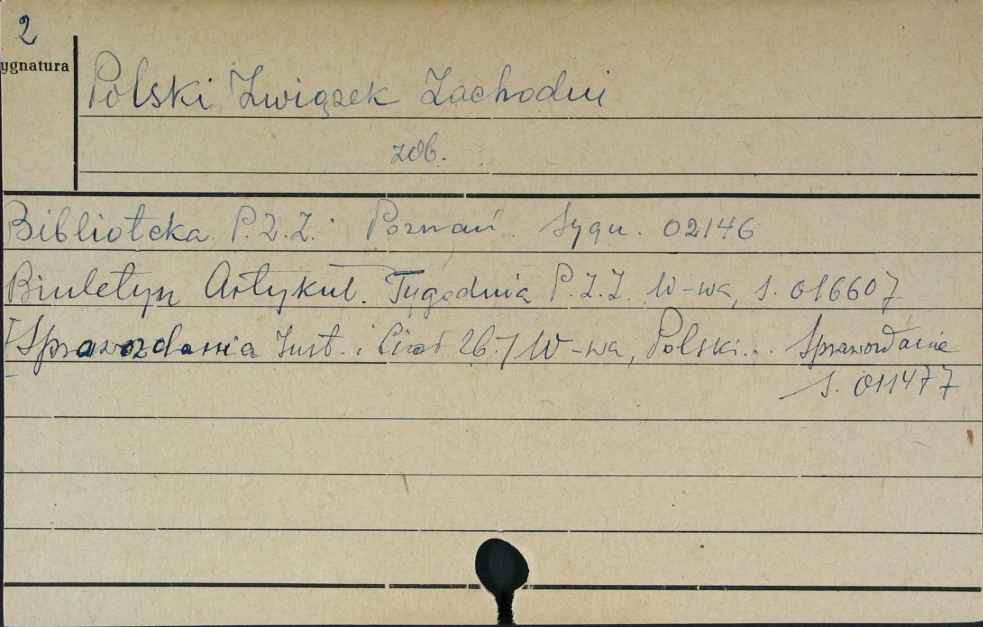 2
ygnatura
Polski Związek Zachodni
zob.
Biblioteka P.Z.Z. Poznań. Sygn. 02146
Biuletyn Artykuł. Tygodnia P.Z.Z. W-wa, S. 016607
Sprawozdania Inst. i W-wa, Polski... Sprawozdanie
S. 011477